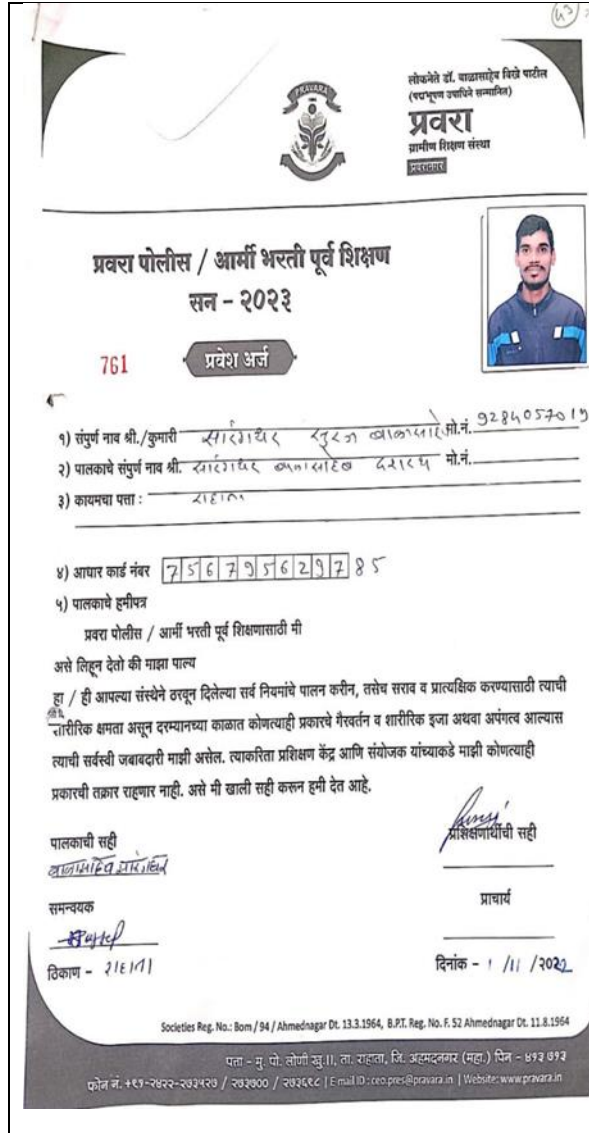 43
PRAVARA
लोकनेते डॉ. बाळासाहेब विखे पाटील
(पद्मभूषण उपाधिने सन्मानित)
प्रवरा
ग्रामीण शिक्षण संस्था
प्रवरानगर
प्रवरा पोलीस / आर्मी भरती पूर्व शिक्षण
सन - २०२३
761 प्रवेश अर्ज
१) संपुर्ण नाव श्री./कुमारी सारंगधर बाळासाहेब मो.नं. 9284057019
२) पालकाचे संपुर्ण नाव श्री. सारंगधर बाळासाहेब दशरथ मो.नं.
३) कायमचा पत्ता : राहाता
४) आधार कार्ड नंबर 756795629785
५) पालकाचे हमीपत्र
प्रवरा पोलीस / आर्मी भरती पूर्व शिक्षणासाठी मी
असे लिहून देतो की माझा पाल्य
हा / ही आपल्या संस्थेने ठरवून दिलेल्या सर्व नियमांचे पालन करीन, तसेच सराव व प्रात्यक्षिक करण्यासाठी त्याची
शारीरिक क्षमता असून दरम्यानच्या काळात कोणत्याही प्रकारचे गैरवर्तन व शारीरिक इजा अथवा अपंगत्व आल्यास
त्याची सर्वस्वी जबाबदारी माझी असेल. त्याकरिता प्रशिक्षण केंद्र आणि संयोजक यांच्याकडे माझी कोणत्याही
प्रकारची तक्रार राहणार नाही. असे मी खाली सही करून हमी देत आहे.
पालकाची सही प्रशिक्षणार्थीची सही
बाळासाहेब सारंगधर
समन्वयक प्राचार्य
ठिकाण - राहाता दिनांक - 1 /11 /2022
Societies Reg. No.: Bom / 94 / Ahmednagar Dt. 13.3.1964, B.P.T. Reg. No. F. 52 Ahmednagar Dt. 11.8.1964
पत्ता - मु. पो. लोणी खु.।।, ता. राहाता, जि. अहमदनगर (महा.) पिन - ४१३ ७१३
फोन नं. +९१-२४२२-२७३५२७ / २७३७०० / २७३६९८ | E-mail ID : ceo.pres@pravara.in | Website: www.pravara.in